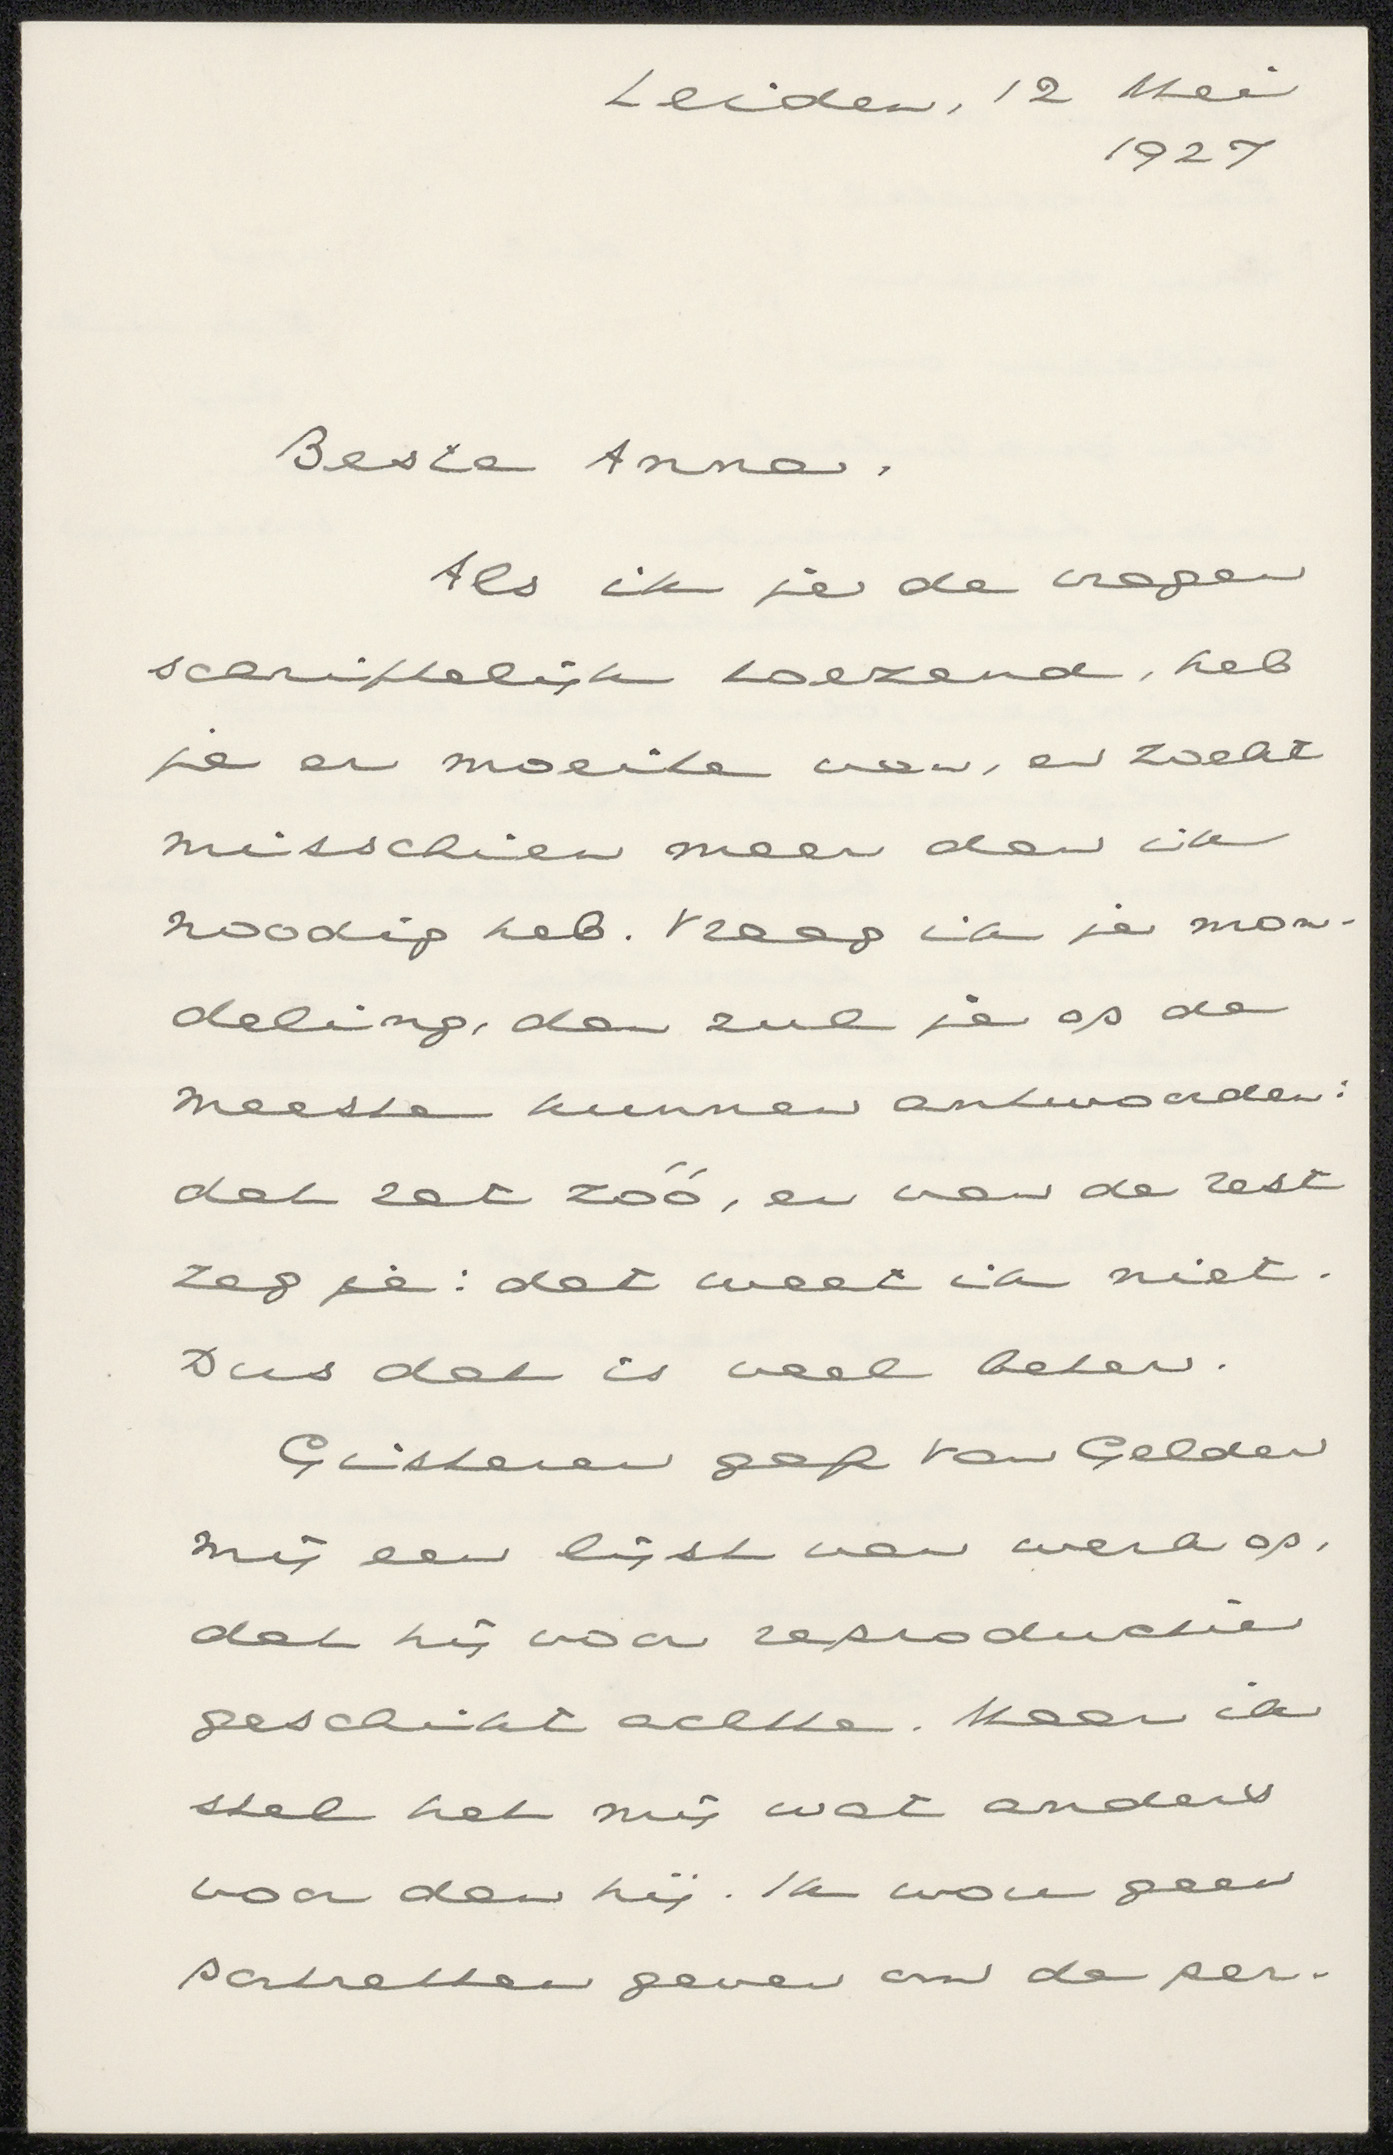 Leiden, 12 Mei
1927
Beste Anna,
Als ik je de vragen
schriftelijk toezend, heb
je er moeite van, en zoekt
misschien meer dan ik
noodig heb. Vraag ik je mon-
deling, dan zul je op de
meeste kunnen antwoorden:
dat zat zóó, en van de rest
zeg je: dat weet ik niet.
Dus dat is veel beter.
Gisteren gaf Van Gelder
mij een lijst van werk op,
dat hij voor reproductie
geschikt achtte. Maar ik
stel het mij wat anders
voor dan hij. Ik wou geen
portretten geven om de per-